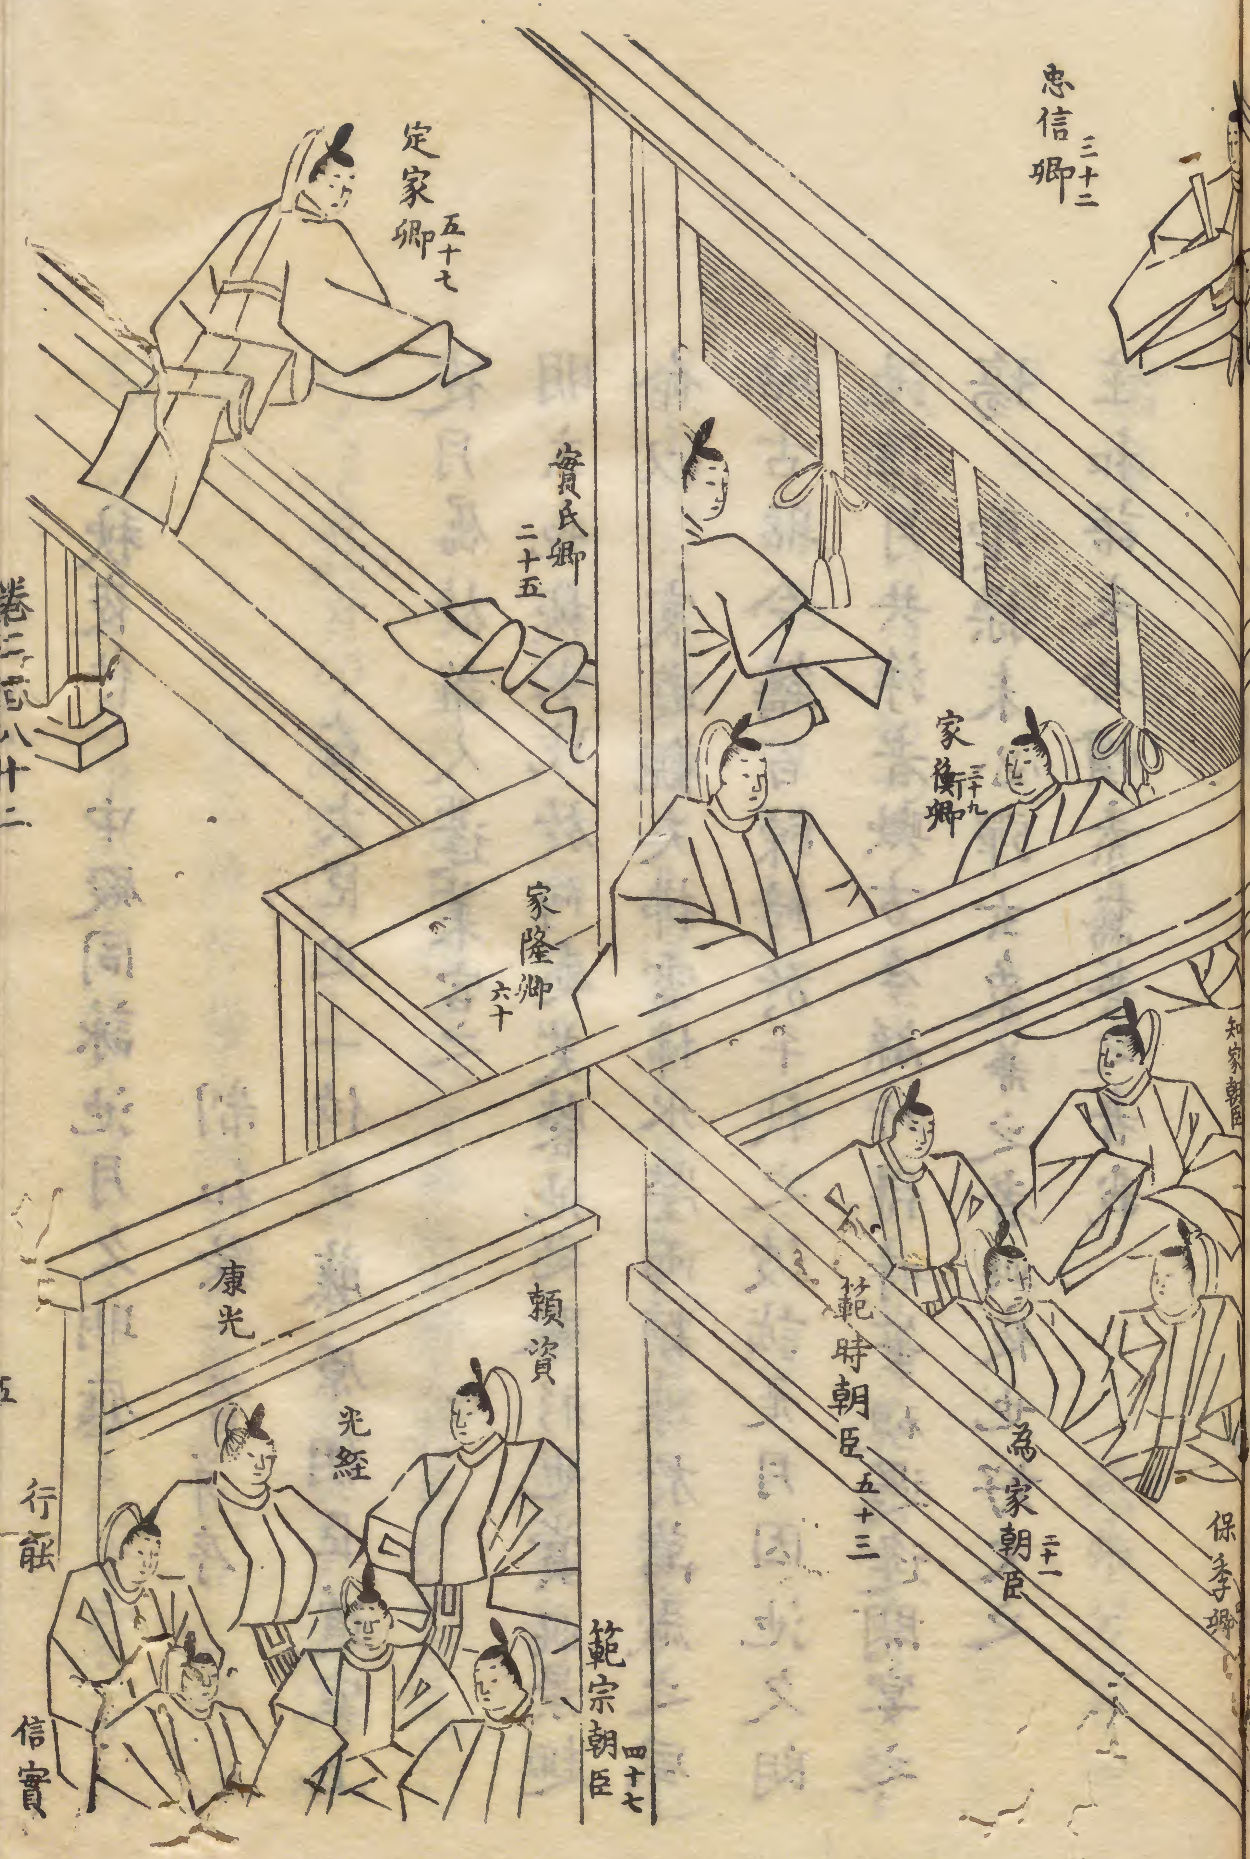 忠信卿
三十二
定家卿
五十七
實氏卿
二十五
家衡卿
三十九
家隆卿
六十
知家朝臣
範時朝臣
五十三
為家朝臣
二十一
保季卿
頼資
光経
康光
行能
範宗朝臣
四十七
信實
巻二百八十二